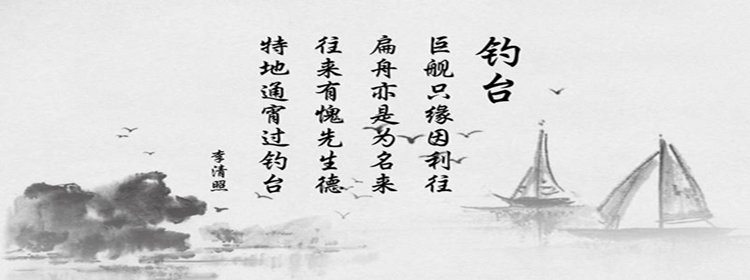 钓台
巨舰只缘因利往
扁舟亦是为名来
往来有愧先生德
特地通宵过钓台
李清照